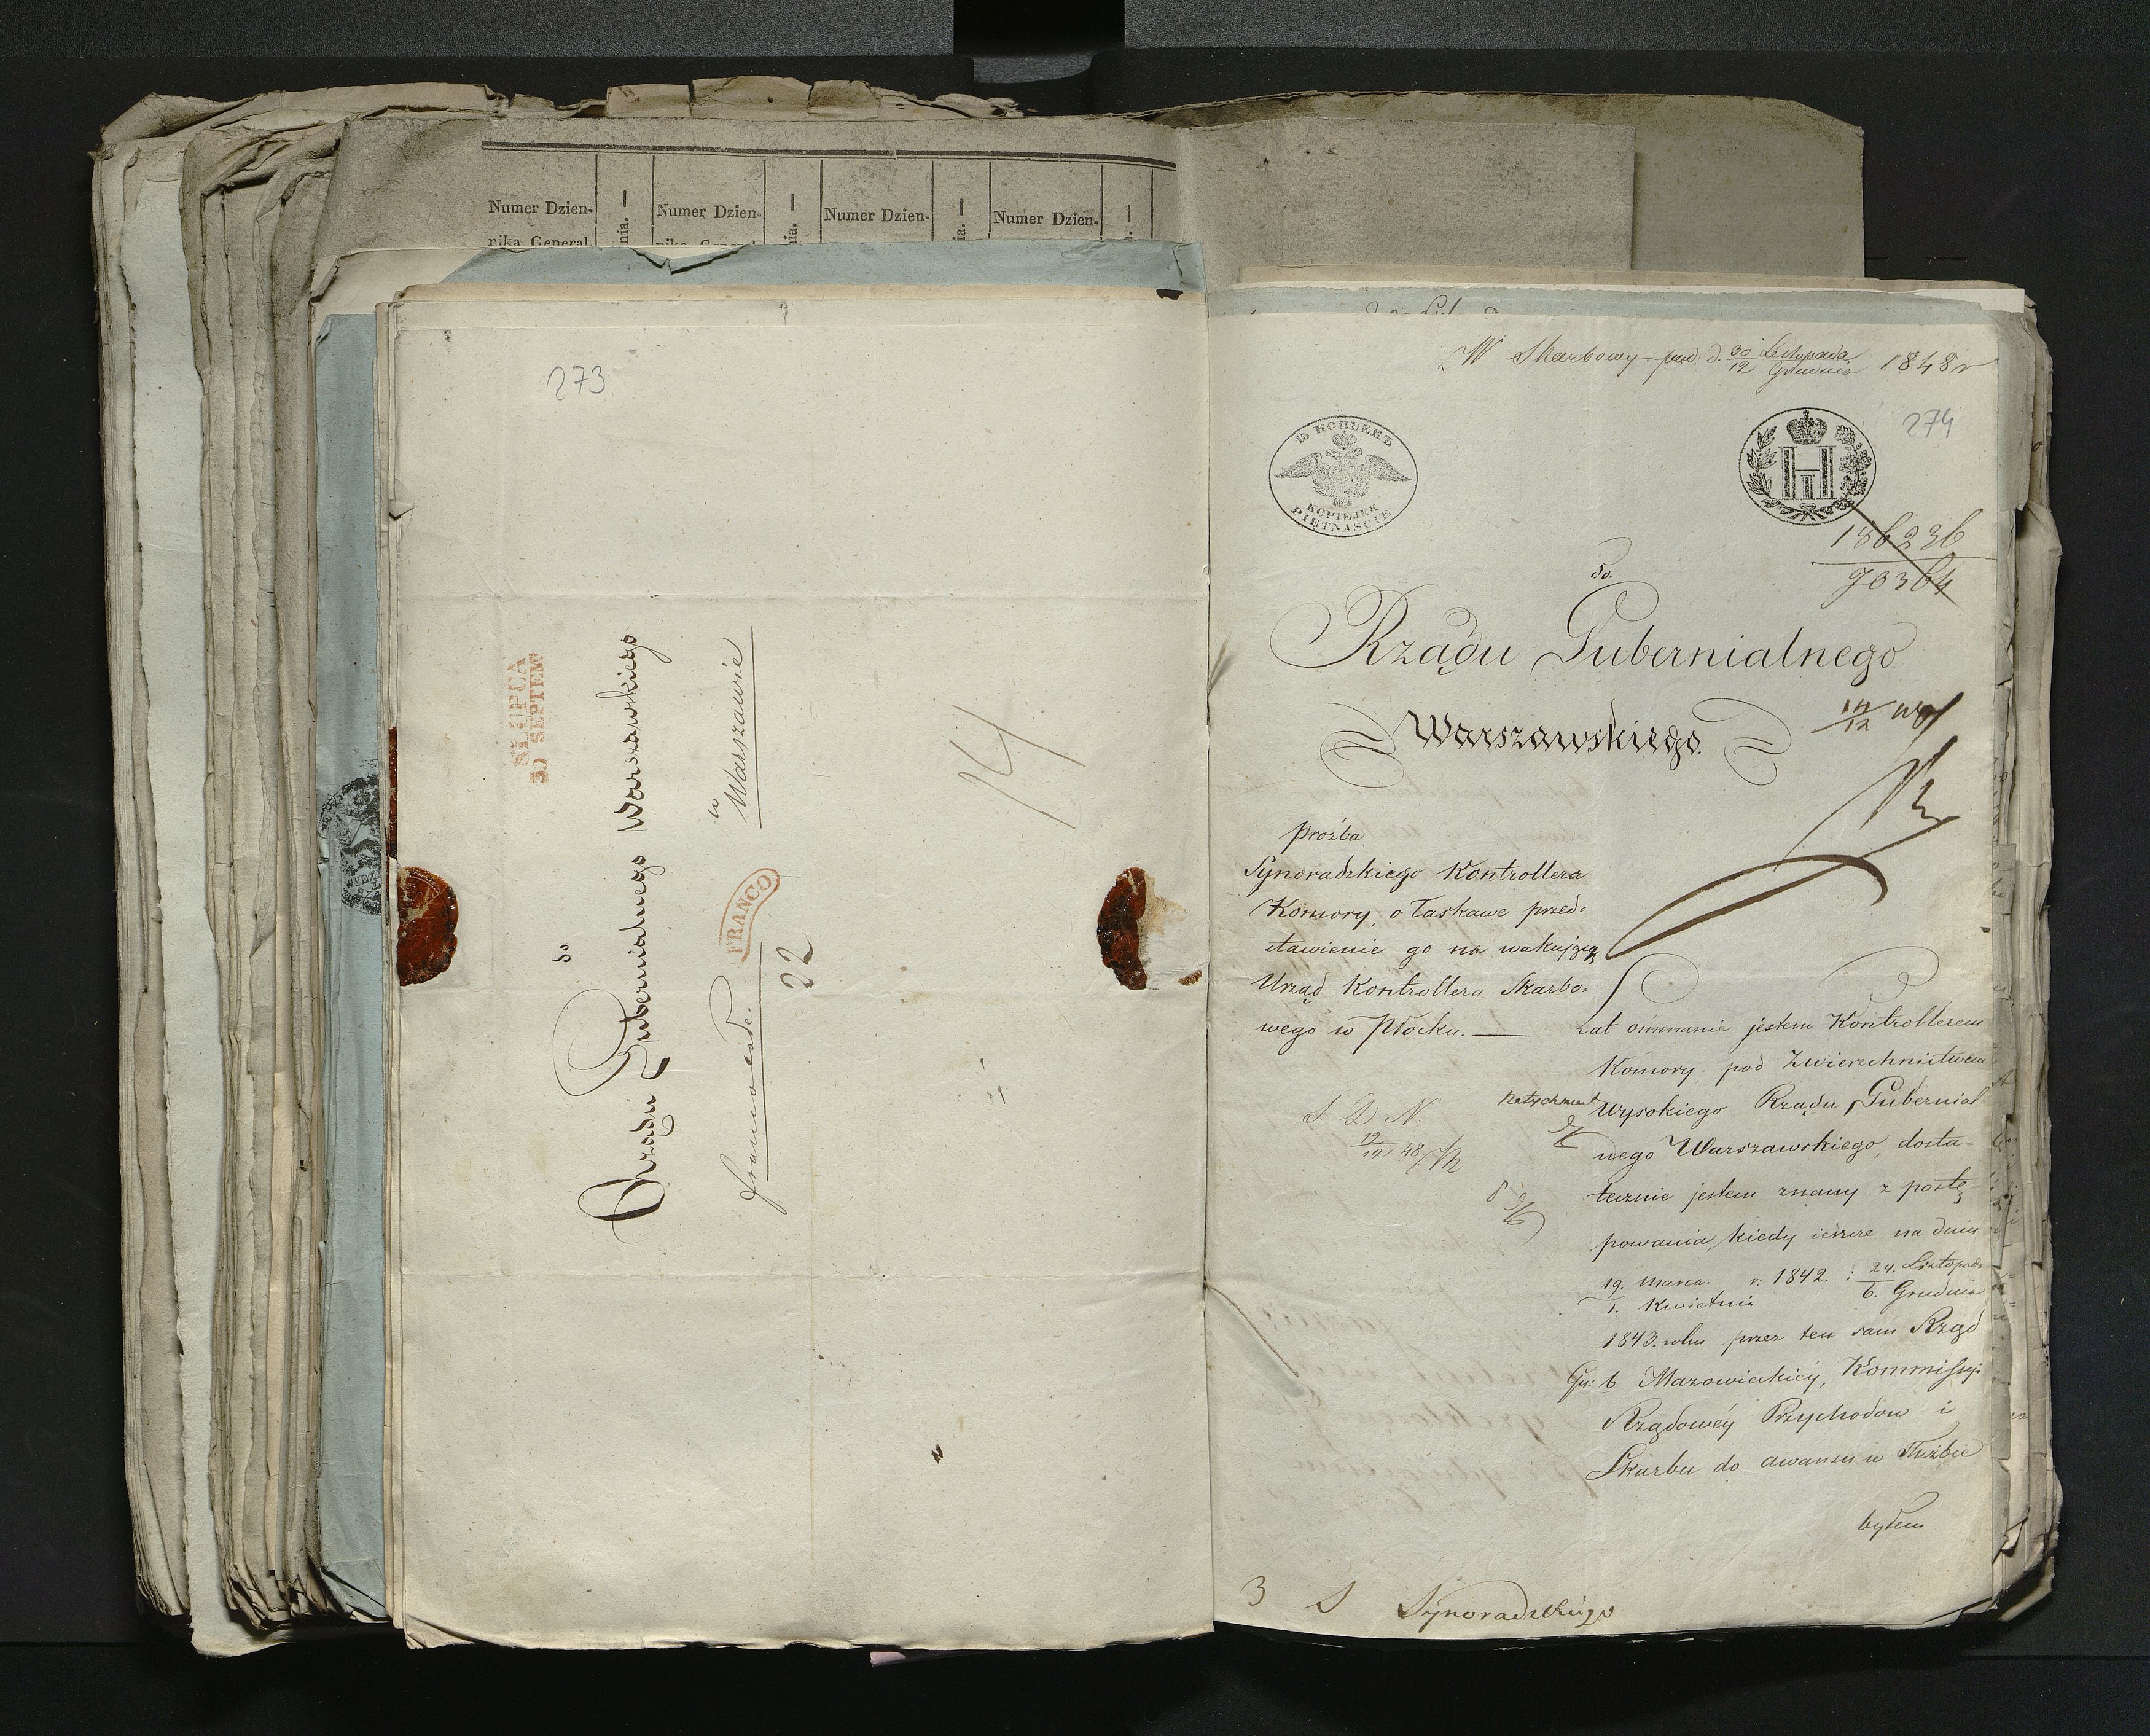 Numer Dzien-
nika General
nia.
Numer Dzien-
nia.
Numer Dzien-
ia.
Numer Dzien-
273
SŁUPCA
30 SEPTEM
do
Rządu Gubernialnego Warszawskiego
w
Warszawie
franco
FRANCO
22
14
W Skarbowy d. 30/12 Listopada/Grudnia 1848 r
274
15 КОПѢЕКЪ
KOPIEJEK
PIĘTNAŚCIE
НI
186236
70364
Do.
Rządu Gubernialnego
Warszawskiego.
Prożba
Synoradzkiego Kontrollera
Komory, o łaskawe przed=
stawienie go na wakujący
Urząd Kontrollera Skarbo=
wego w Płocku.
S. D. N.
12/12 48
Lat ośmnaście jestem Kontrollerem
Komory pod Zwierzchnictwem
Wysokiego Rządu Gubernial
nego Warszawskiego, dosta-
tecznie jestem znany z postę-
powania, kiedy ieszcze na dniu
19. Marca / 1. Kwietnia r: 1842. i 24. Listopad / 6. Grudnia
1843. roku przez ten sam Rząd
Gub Mazowieckiéy, Kommissyi
Rządowéy Przychodow i
Skarbu do awansu w Służbie
byłem
3 S Synoradzkiego